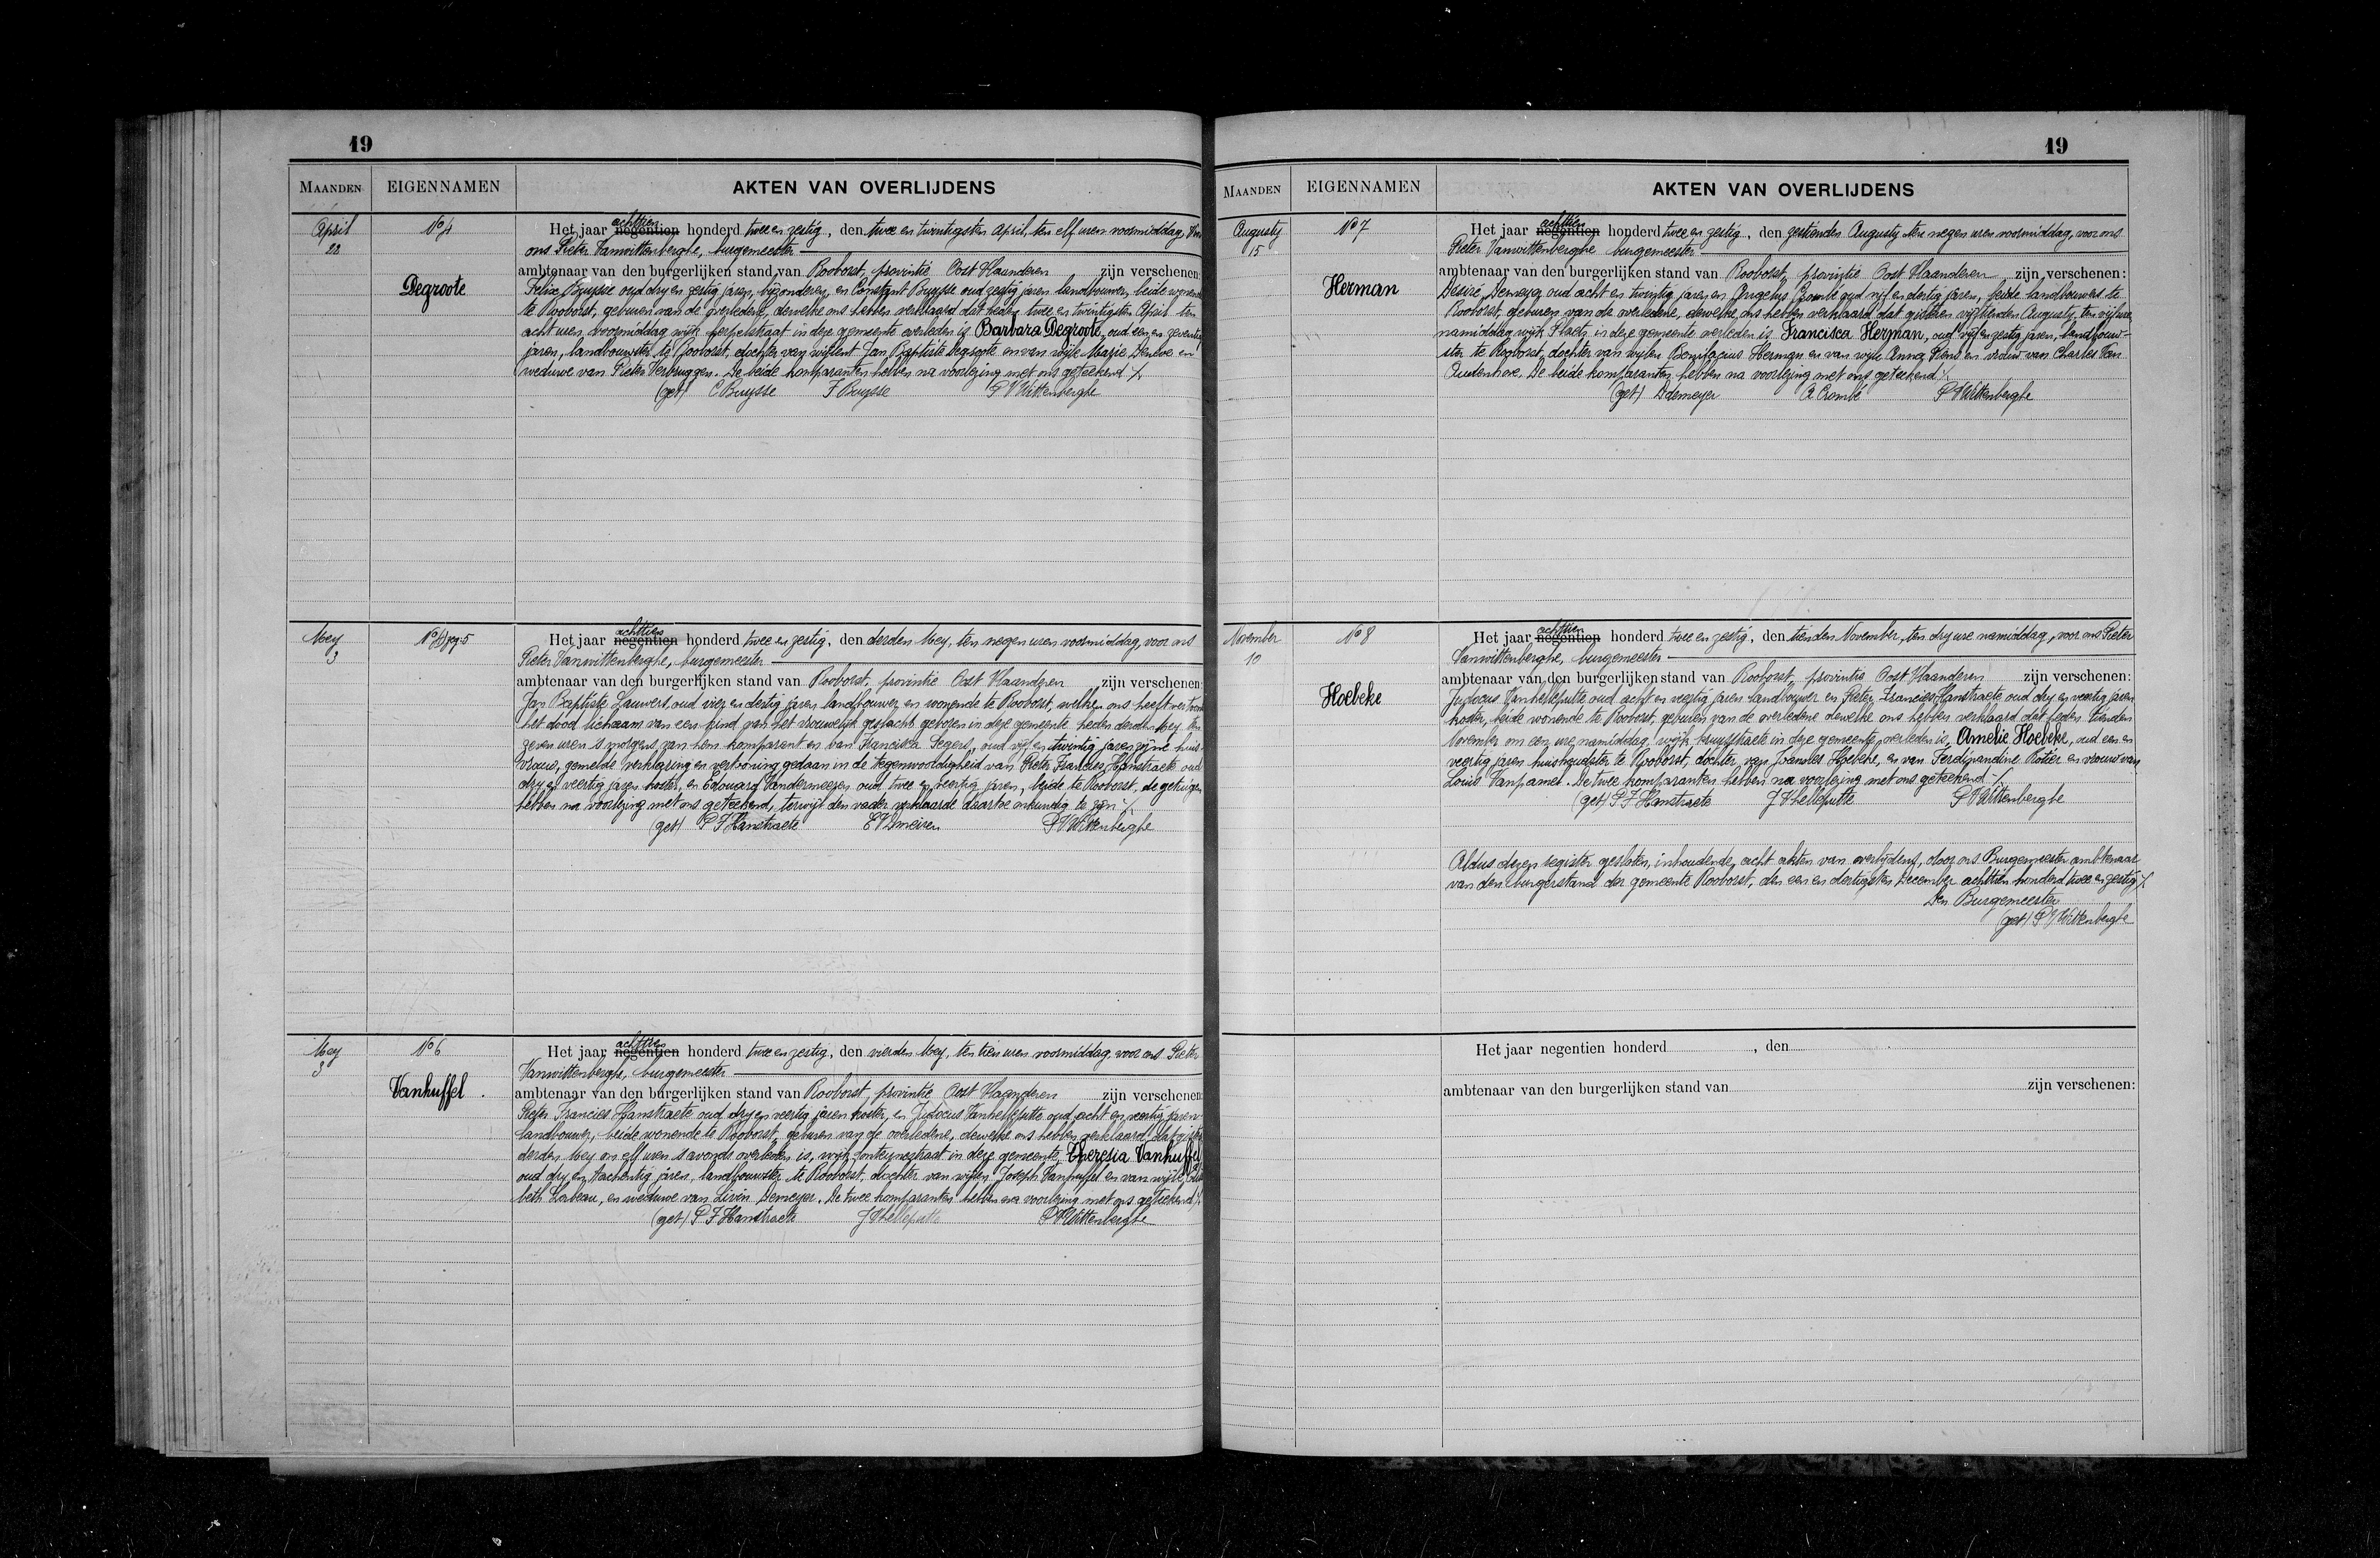 19
MAANDEN EIGENNAMEN AKTEN VAN OVERLIJDENS
April
22
No 4
Degroote
Het jaar negentien achttien honderd twee en zestig, den twee en twintigsten April, ten elf uren voormiddag, voor
ons Pieter Vanwittenberghe, burgemeester
ambtenaar van den burgerlijken stand van Rooborst, provintie Oost Vlaanderen zijn verschenen:
Felix Buysse oud dry en zestig jaren, byzonderen, en Constant Buysse oud zestig jaren landbouwer, beide wonende
te Rooborst, geburen van de overledene, dewelke ons hebben verklaard dat heden twee en twintigsten April ten
acht uren voormiddag wijk in deze gemeente overleden is Barbara Degroote, oud een en zeventig
jaren, landbouwster te Rooborst, dochter van wijlent Jan Baptiste Degroote en van wijle Marie en
weduwe van Pieter Verbruggen. De beide komparanten hebben na voorlezing met ons geteekend ./.
(get) C Buysse F Buysse P VWittenberghe
Mey
3
No 4 5
Het jaar negentien achttien honderd twee en zestig, den derden Mey, ten negen uren voormiddag, voor ons
Pieter Vanwittenberghe, burgemeester
ambtenaar van den burgerlijken stand van Rooborst, provintie Oost Vlaanderen zijn verschenen:
Jan Baptiste Lauwers, oud vier en dertig jaren landbouwer en wonende te Rooborst, welken ons heeft vertoond
het dood lichaam van een kind van het vrouwelijk geslacht, geboren in deze gemeente heden derden Mey ten
zeven uren s'morgens, van hem komparent en van Francisca Segers, oud vijf en twintig jaren zijne huis-
vrouw, gemelde verklaring en vertooning gedaan in de tegenwoordigheid van Pieter Francies Hanstraete oud
dry en veertig jaren koster, en Edouard Vandermeeren oud twee en veertig jaren, beide te Rooborst, de getuigen
hebben na voorlezing met ons geteekend, terwijl den vader verklaarde daartoe onkundig te zijn ./.
(get) P F Hanstraete E VDmeiren P VWittenberghe
Mey
3
No 6
Vanhuffel.
Het jaar negentien achttien honderd twee en zestig, den vierden Mey, ten tien uren voormiddag, voor ons Pieter
Vanwittenberghe, burgemeester
ambtenaar van den burgerlijken stand van Rooborst, provintie Oost Vlaanderen zijn verschenen:
Pieter Francies Hanstraete oud dry en veertig jaren koster, en Judocus Vanhelleputte oud acht en veertig jaren
landbouwer, beide wonende te Rooborst, geburen van de overledene, dewelke ons hebben verklaard dat gister
derden Mey om elf uren s'avonds overleden is, wijk in deze gemeente, Theresia Vanhuffel
oud dry en tachentig jaren, landbouwster te Rooborst, dochter van wijlen Joseph Vanhuffel en van wijle
beth Lorbeau, en weduwe van Livin Demeyer. De twee komparanten hebben na voorlezing met ons geteekend ./.
(get) P F Hanstraete J VHelleputte P VWittenberghe
19
MAANDEN EIGENNAMEN AKTEN VAN OVERLIJDENS
Augusty
15
No 7
Herman
Het jaar negentien achttien honderd twee en zestig, den zestienden Augusty ten negen uren voormiddag, voor ons
Pieter Vanwittenberghe burgemeester
ambtenaar van den burgerlijken stand van Rooborst, provintie Oost Vlaanderen zijn verschenen:
Désiré Demeyer oud acht en twintig jaren en Angelus Crombé oud vijf en dertig jaren, beide landbouwers te
Rooborst, geburen van de overledene, dewelke ons hebben verklaard dat gisteren vijftienden Augusty, ten vijf uren
namiddag wijk Plaets in deze gemeente overleden is Francisca Herman, oud vijf en zestig jaren, landbouw-
ster te Rooborst, dochter van wijlen Bonifacius Herman en van wijle Anna en vrouw van Charles Van
Oudenhove. De beide komparanten hebben na voorlezing met ons geteekend ./.
(get) D demeyer A Crombé P VWittenberghe
November
10
No 8
Hoebeke
Het jaar negentien achttien honderd twee en zestig, den tienden November, ten dry ure namiddag, voor ons Pieter
Vanwittenberghe, burgemeester
ambtenaar van den burgerlijken stand van Rooborst, provintie Oost Vlaanderen zijn verschenen:
Judocus Vanhelleputte oud acht en veertig jaren landbouwer en Pieter Francies Hanstraete oud dry en veertig jaren
koster, beide wonende te Rooborst, geburen van de overledene dewelke ons hebben verklaard dat heden tienden
November om een ure namiddag, wijk kruysstraete in deze gemeente, overleden is, Amelie Hoebeke, oud een en
veertig jaren huishoudster te Rooborst, dochter van Joannes Hoebeke, en van Ferdinandine Rotier en vrouw van
Louis Vanpamel. De twee komparanten hebben na voorlezing met ons geteekend ./.
(get) P F Hanstraete J VHelleputte P VWittenberghe
Aldus dezen register gesloten, inhoudende acht akten van overlijdens, door ons Burgemeester ambtenaar
van den burgerstand der gemeente Rooborst, den een en dertigsten December achttien honderd twee en zestig ./.
Den Burgemeester
(get) P VWittenberghe
Het jaar negentien honderd , den
ambtenaar van den burgerlijken stand van zijn verschenen: